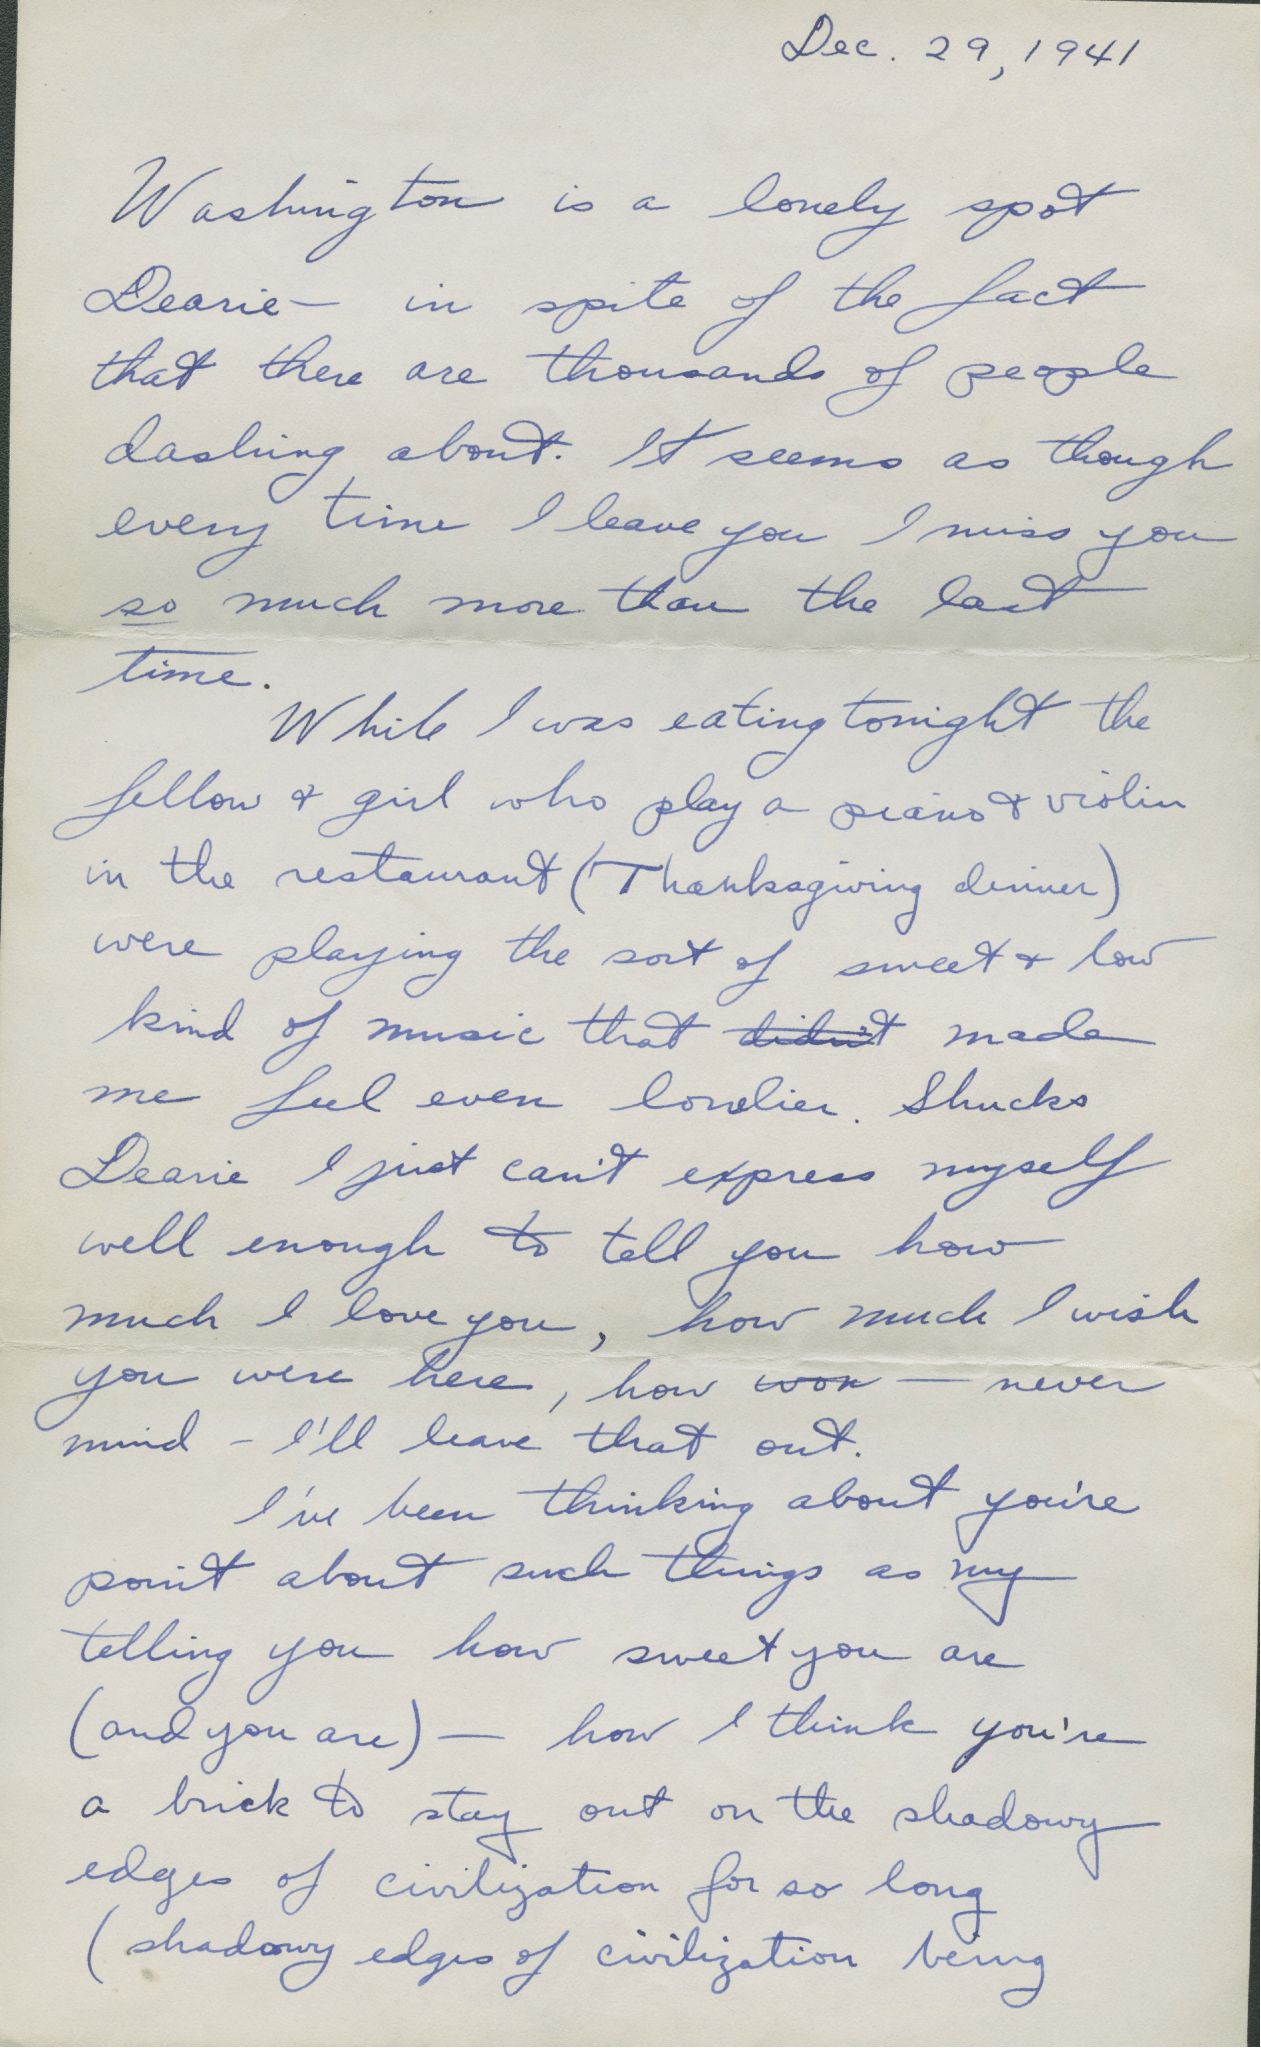 Dec. 29, 1941
Washington is a lonely spot
Dearie— in spite of the fact
that there are thousands of people
dashing about. It seems as though
every time I leave you I miss you
so much more than the last
time.
While I was eating tonight the
fellow & girl who play a piano & violin
in the restaurant (Thanksgiving dinner)
were playing the sort of sweet & low
kind of music that didn't made
me feel even lonelier. Shucks
Dearie I just can't express myself
well enough to tell you how
much I love you, how much I wish
you were here, how won — never
mind - I'll leave that out.
I've been thinking about you're
point about such things as my
telling you how sweet you are
(and you are) — how I think you're
a brick to stay out on the shadowy
edges of civilization for so long
(shadowy edges of civilization being